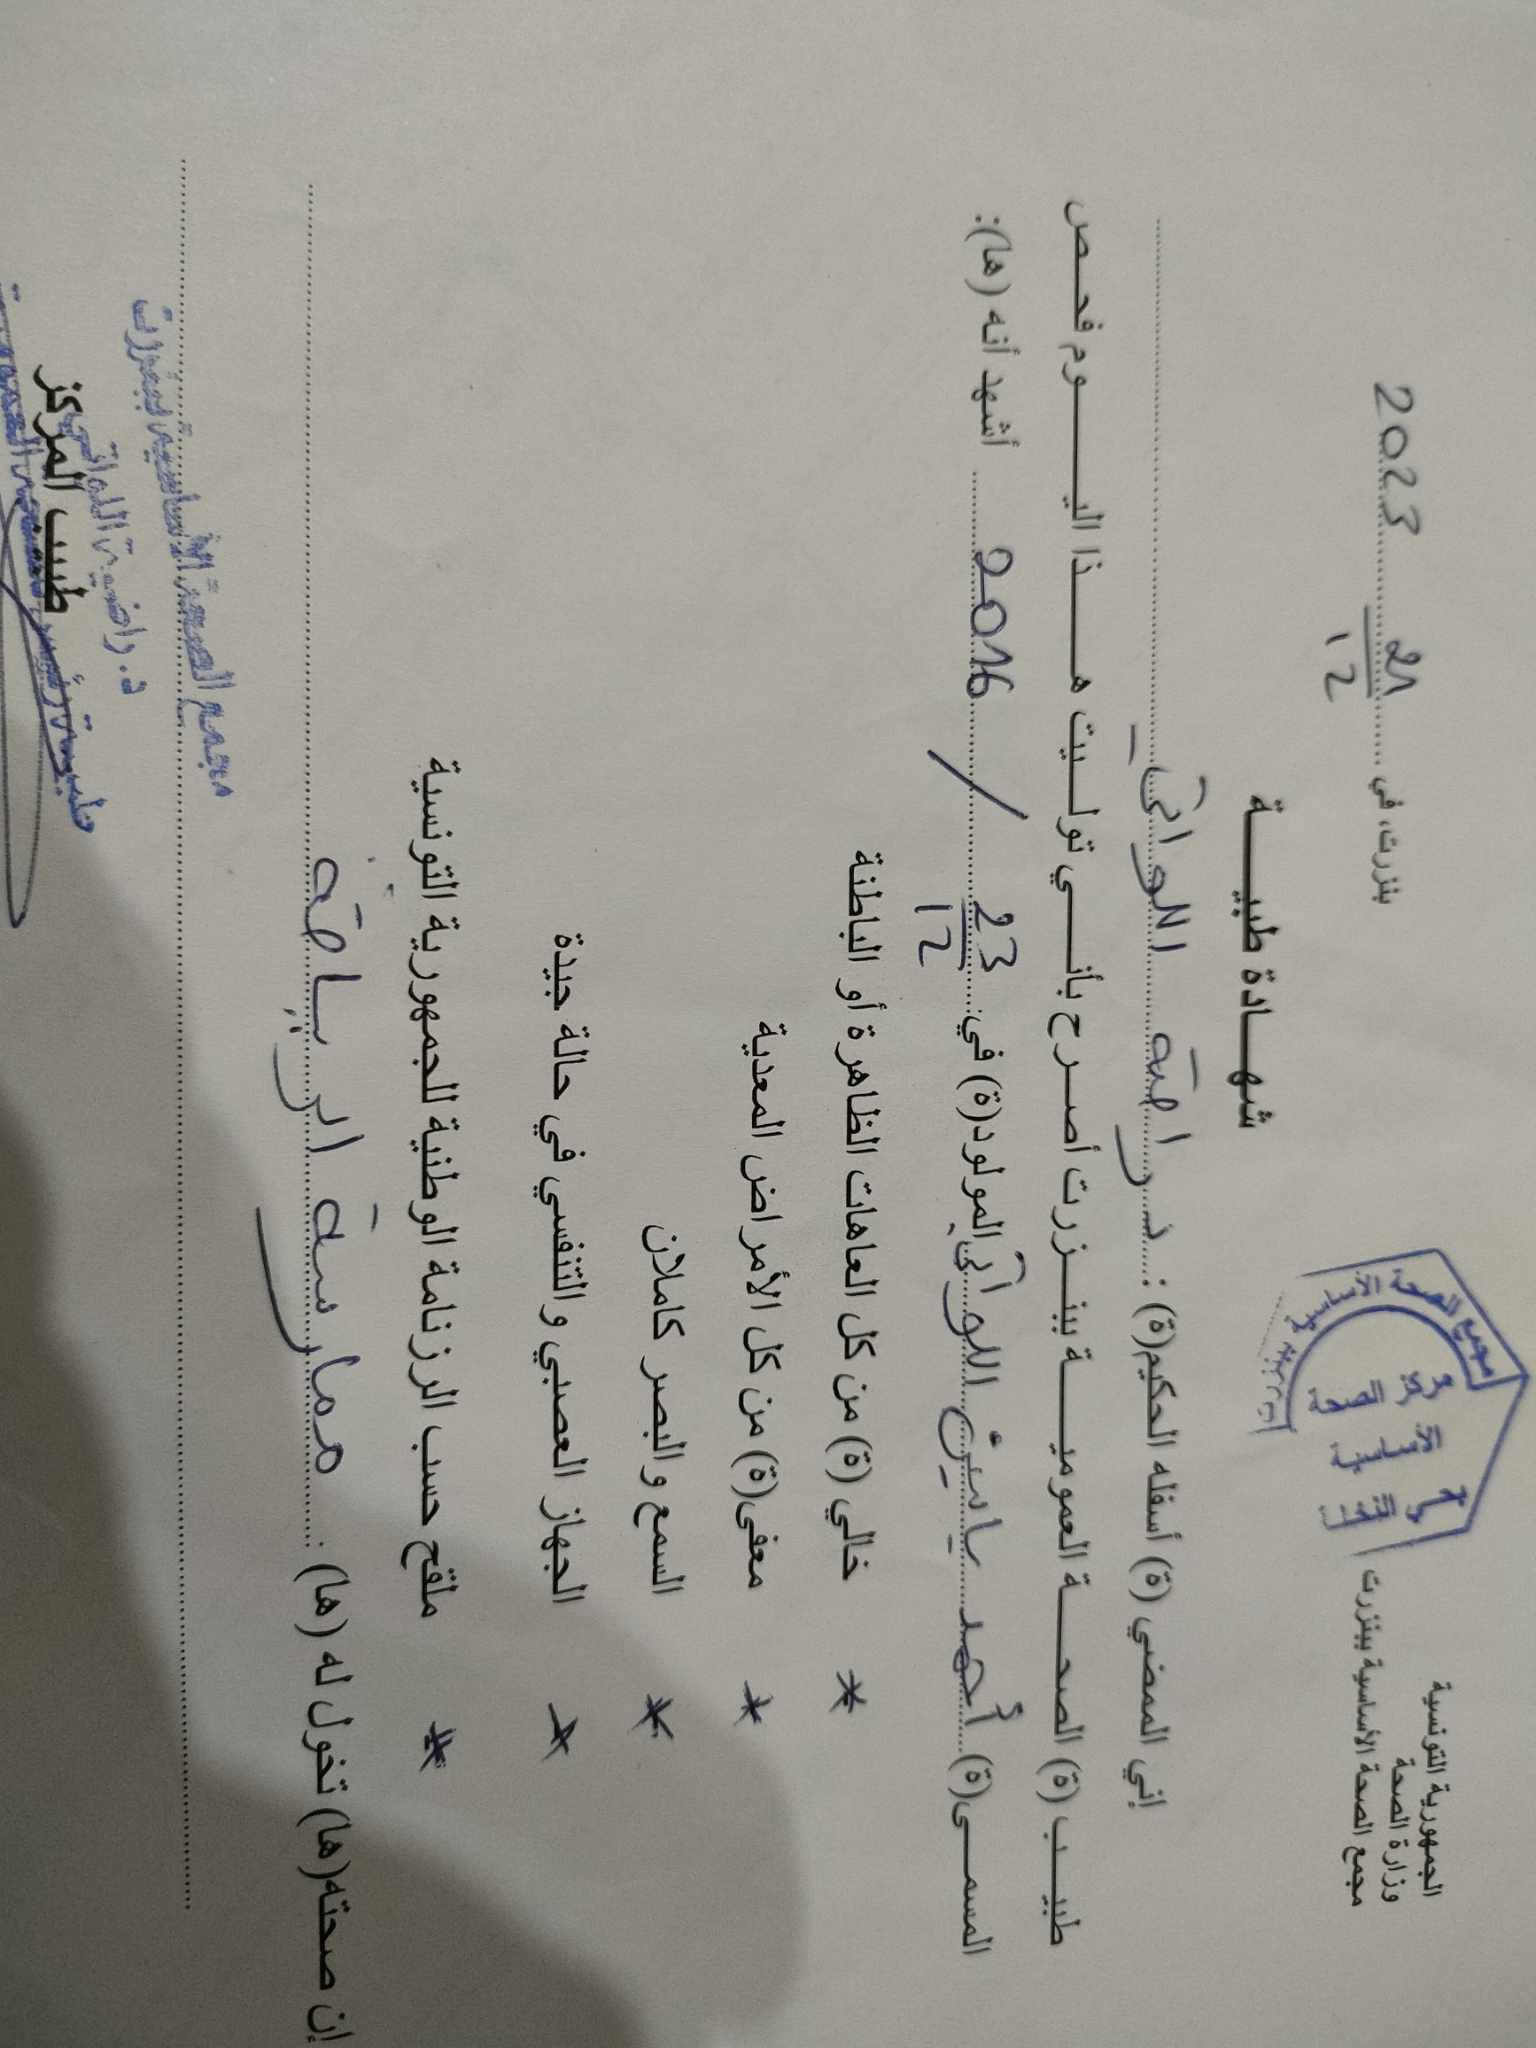 الجمهورية التونسية
وزارة الصحة
مجمع الصحة الأساسية ببنزرت
مجمع الصحة الأساسية ببنزرت
مركز الصحة
الأساسية
بنزرت، في 21/12 2023
شهادة طبية
إني الممضي (ة) أسفله الحكيم(ة) : د. راضية اللواتي
طبيب (ة) الصحة العمومية ببنزرت أصرح بأني توليت هذا اليوم فحص
المسمى(ة) أحمد ياسين اللواتي المولود(ة) في 23/12 / 2016 أشهد أنه (ها):
* خالي (ة) من كل العاهات الظاهرة أو الباطنة
* معفى(ة) من كل الأمراض المعدية
* السمع والبصر كاملان
* الجهاز العصبي والتنفسي في حالة جيدة
* ملقح حسب الرزنامة الوطنية للجمهورية التونسية
إن صحته(ها) تخول له (ها) : ممارسة الرياضة
مجمع الصحة الأساسية ببنزرت
د. راضية اللواتي
طبيب المركز